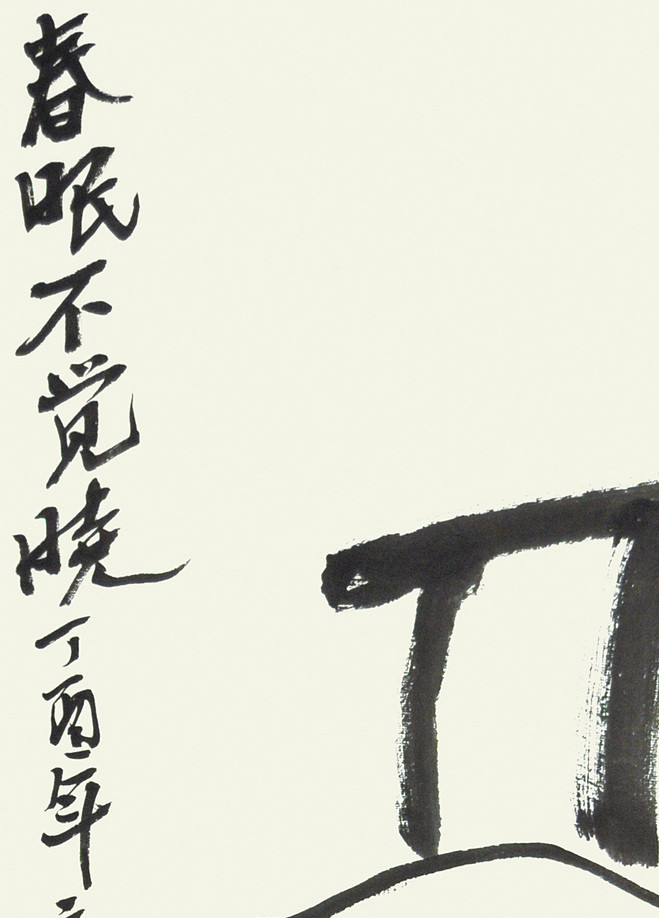 春眠不觉晓丁酉年